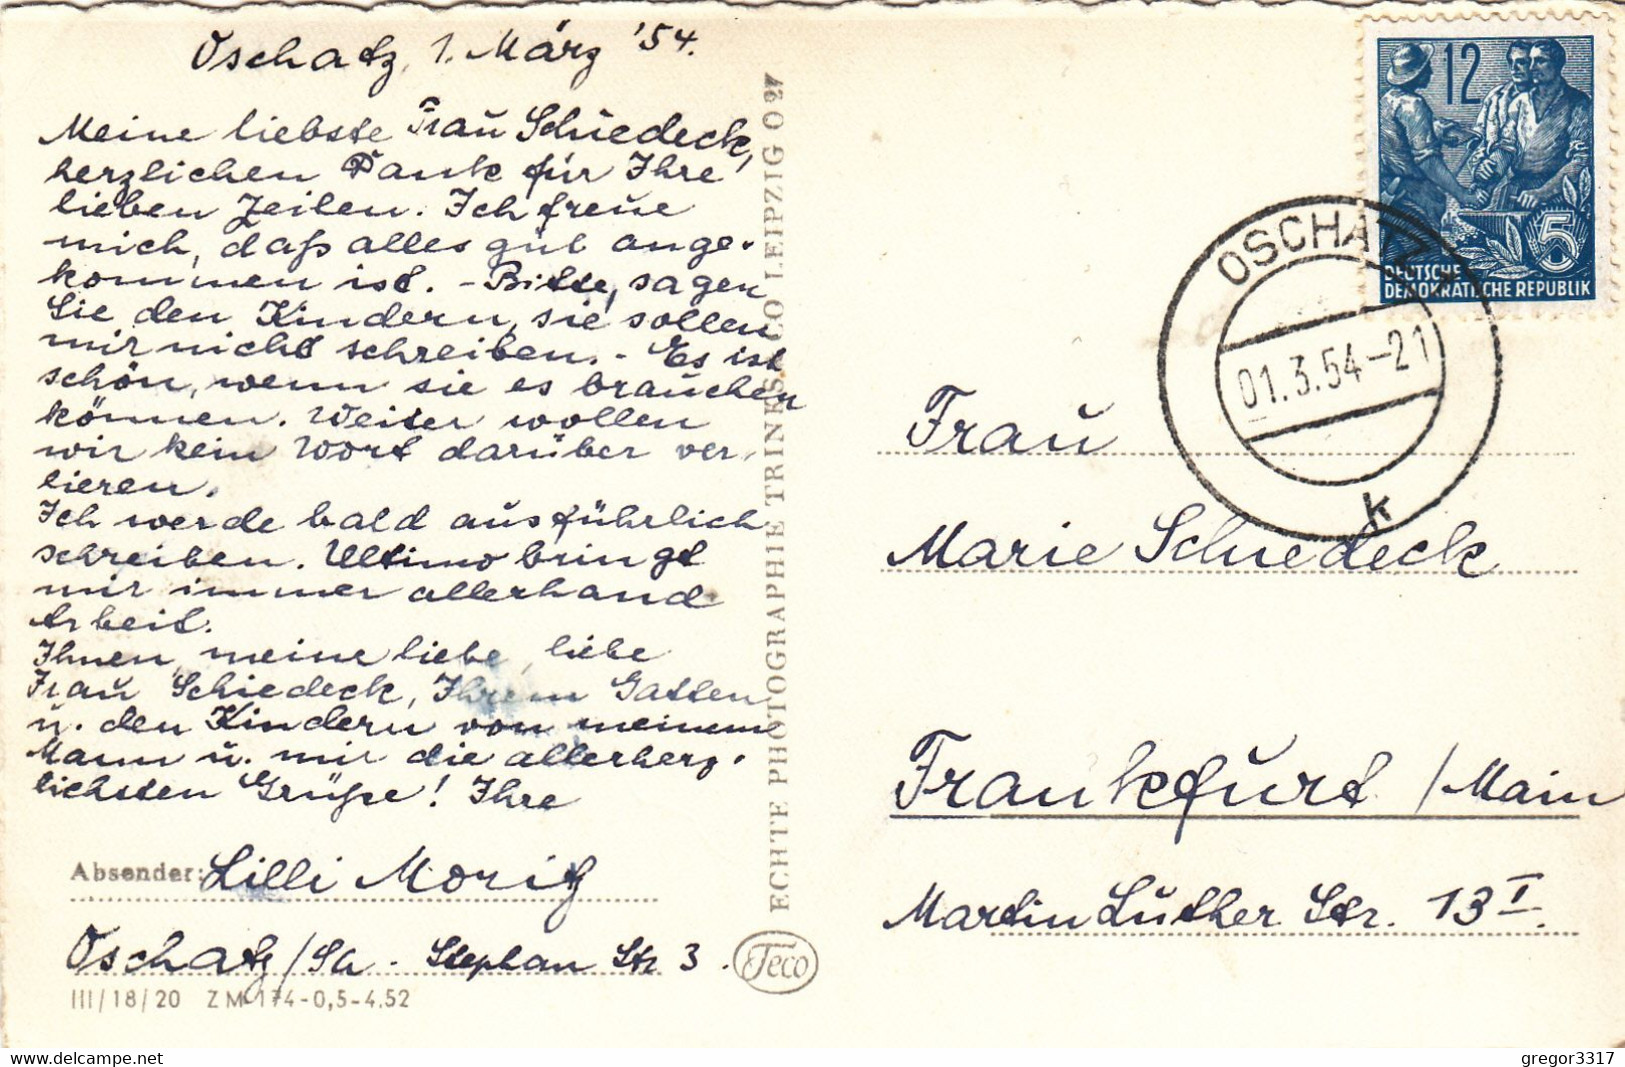 Oschatz, 1. März '54.
Meine liebste Frau Schiedeck,
herzlichen Dank für Ihre
lieben Zeilen. Ich freue
mich, daß alles gut ange-
kommen ist. - Bitte, sagen
Sie den Kindern, sie sollen
mir nicht schreiben. - Es ist
schön, wenn sie es brauchen
können. Weiter wollen
wir kein Wort darüber ver-
lieren.
Ich werde bald ausführlich
schreiben. Ultimo bringt
mir immer allerhand
Arbeit.
Ihnen, meine liebe, liebe
Frau Schiedeck, Ihrem Gatten
u. den Kindern von meinem
Mann u. mir die allerherz-
lichsten Grüße! Ihre
Absender: Lilli Moritz
Oschatz/Sa. Stephan Str 3.
III/18/20 ZM 174-0,5-4.52
ECHTE PHOTOGRAPHIE TRINKS-CO LEIPZIG O 27
Teco
12
5
DEUTSCHE
DEMOKRATISCHE REPUBLIK
OSCHATZ
01.3.54-21
k
Frau
Marie Schiedeck
Frankfurt /Main
Martin Luther Str. 13 I.
https://www.delcampe.net
gregor3317